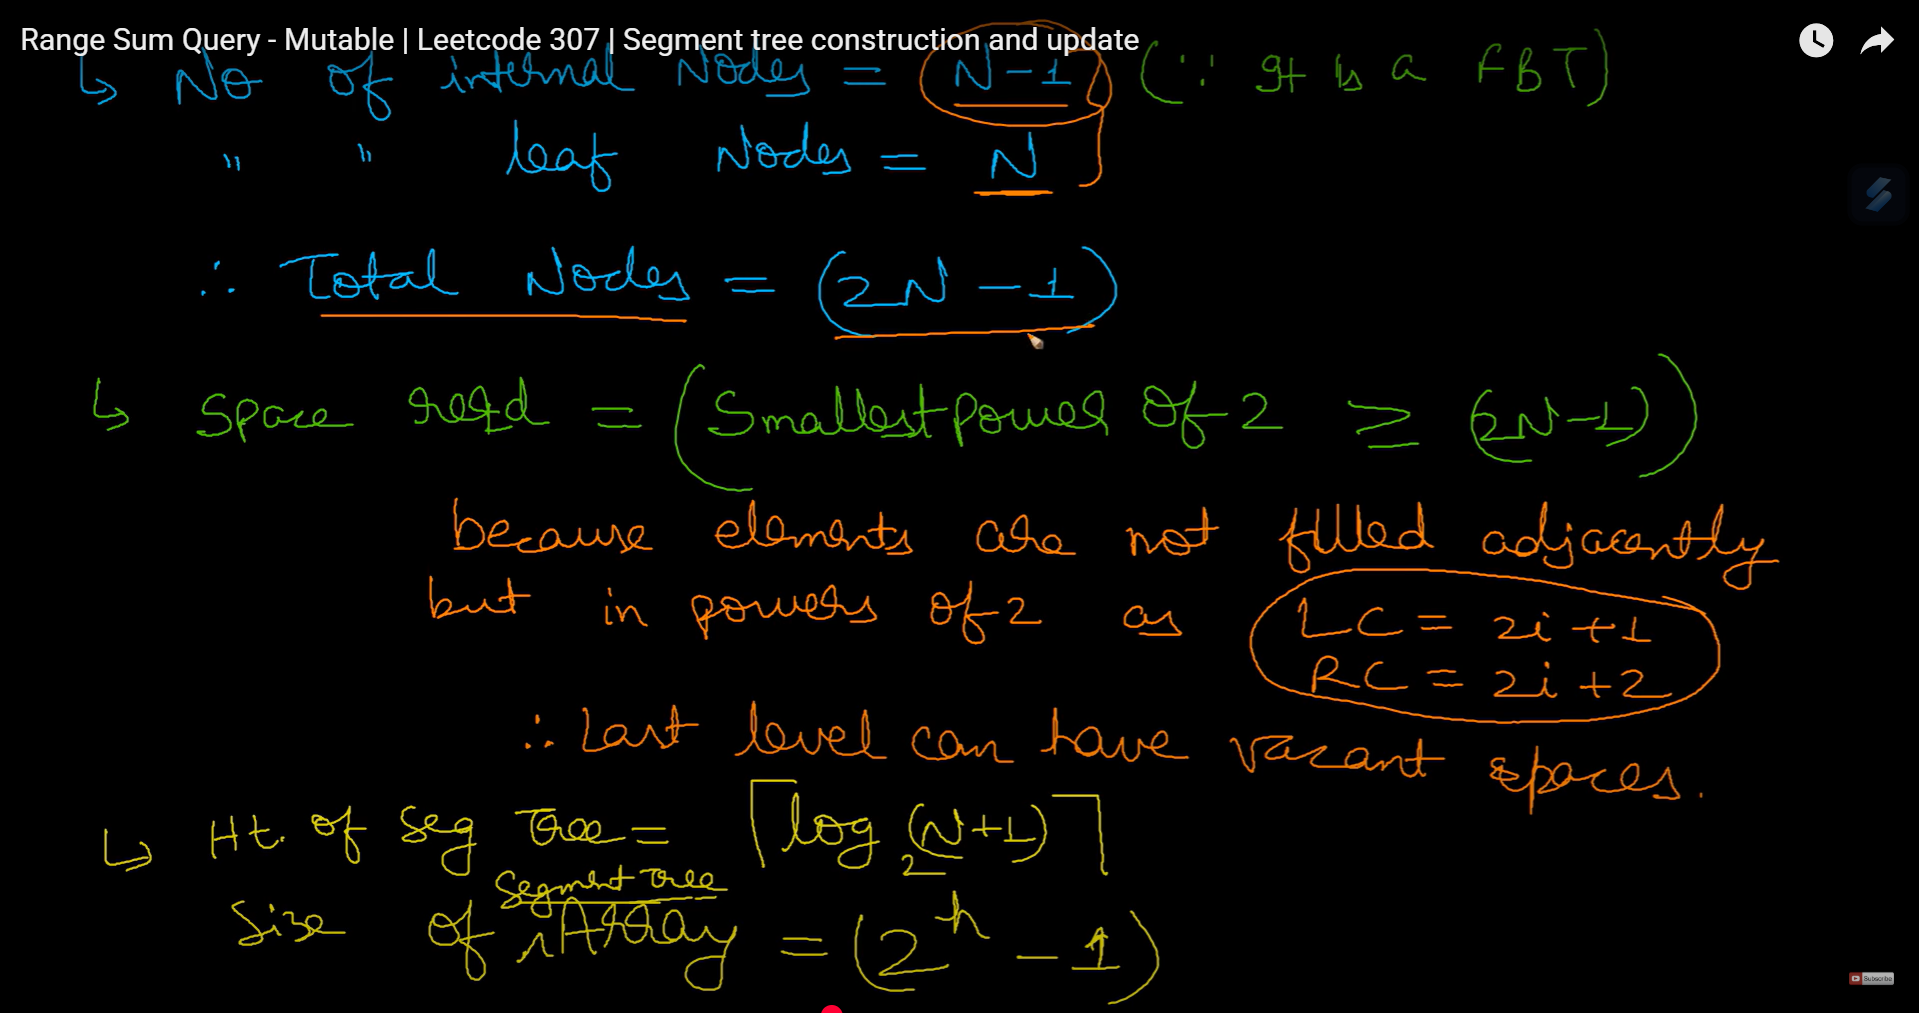 Range Sum Query - Mutable | Leetcode 307 | Segment tree construction and update
↳ No of internal Nodes = N-1 (∵ It is a FBT)
" " leaf Nodes = N
∴ Total Nodes = (2N-1)
↳ Space reqd = (Smallest power of 2 ≥ (2N-1))
because elements are not filled adjacently
but in powers of 2 as LC = 2i+1
RC = 2i+2
∴ Last level can have vacant spaces.
↳ Ht. of Seg Tree = ⌈log₂(N+1)⌉
Segment Tree
Size of Array = (2ʰ - 1)
Subscribe